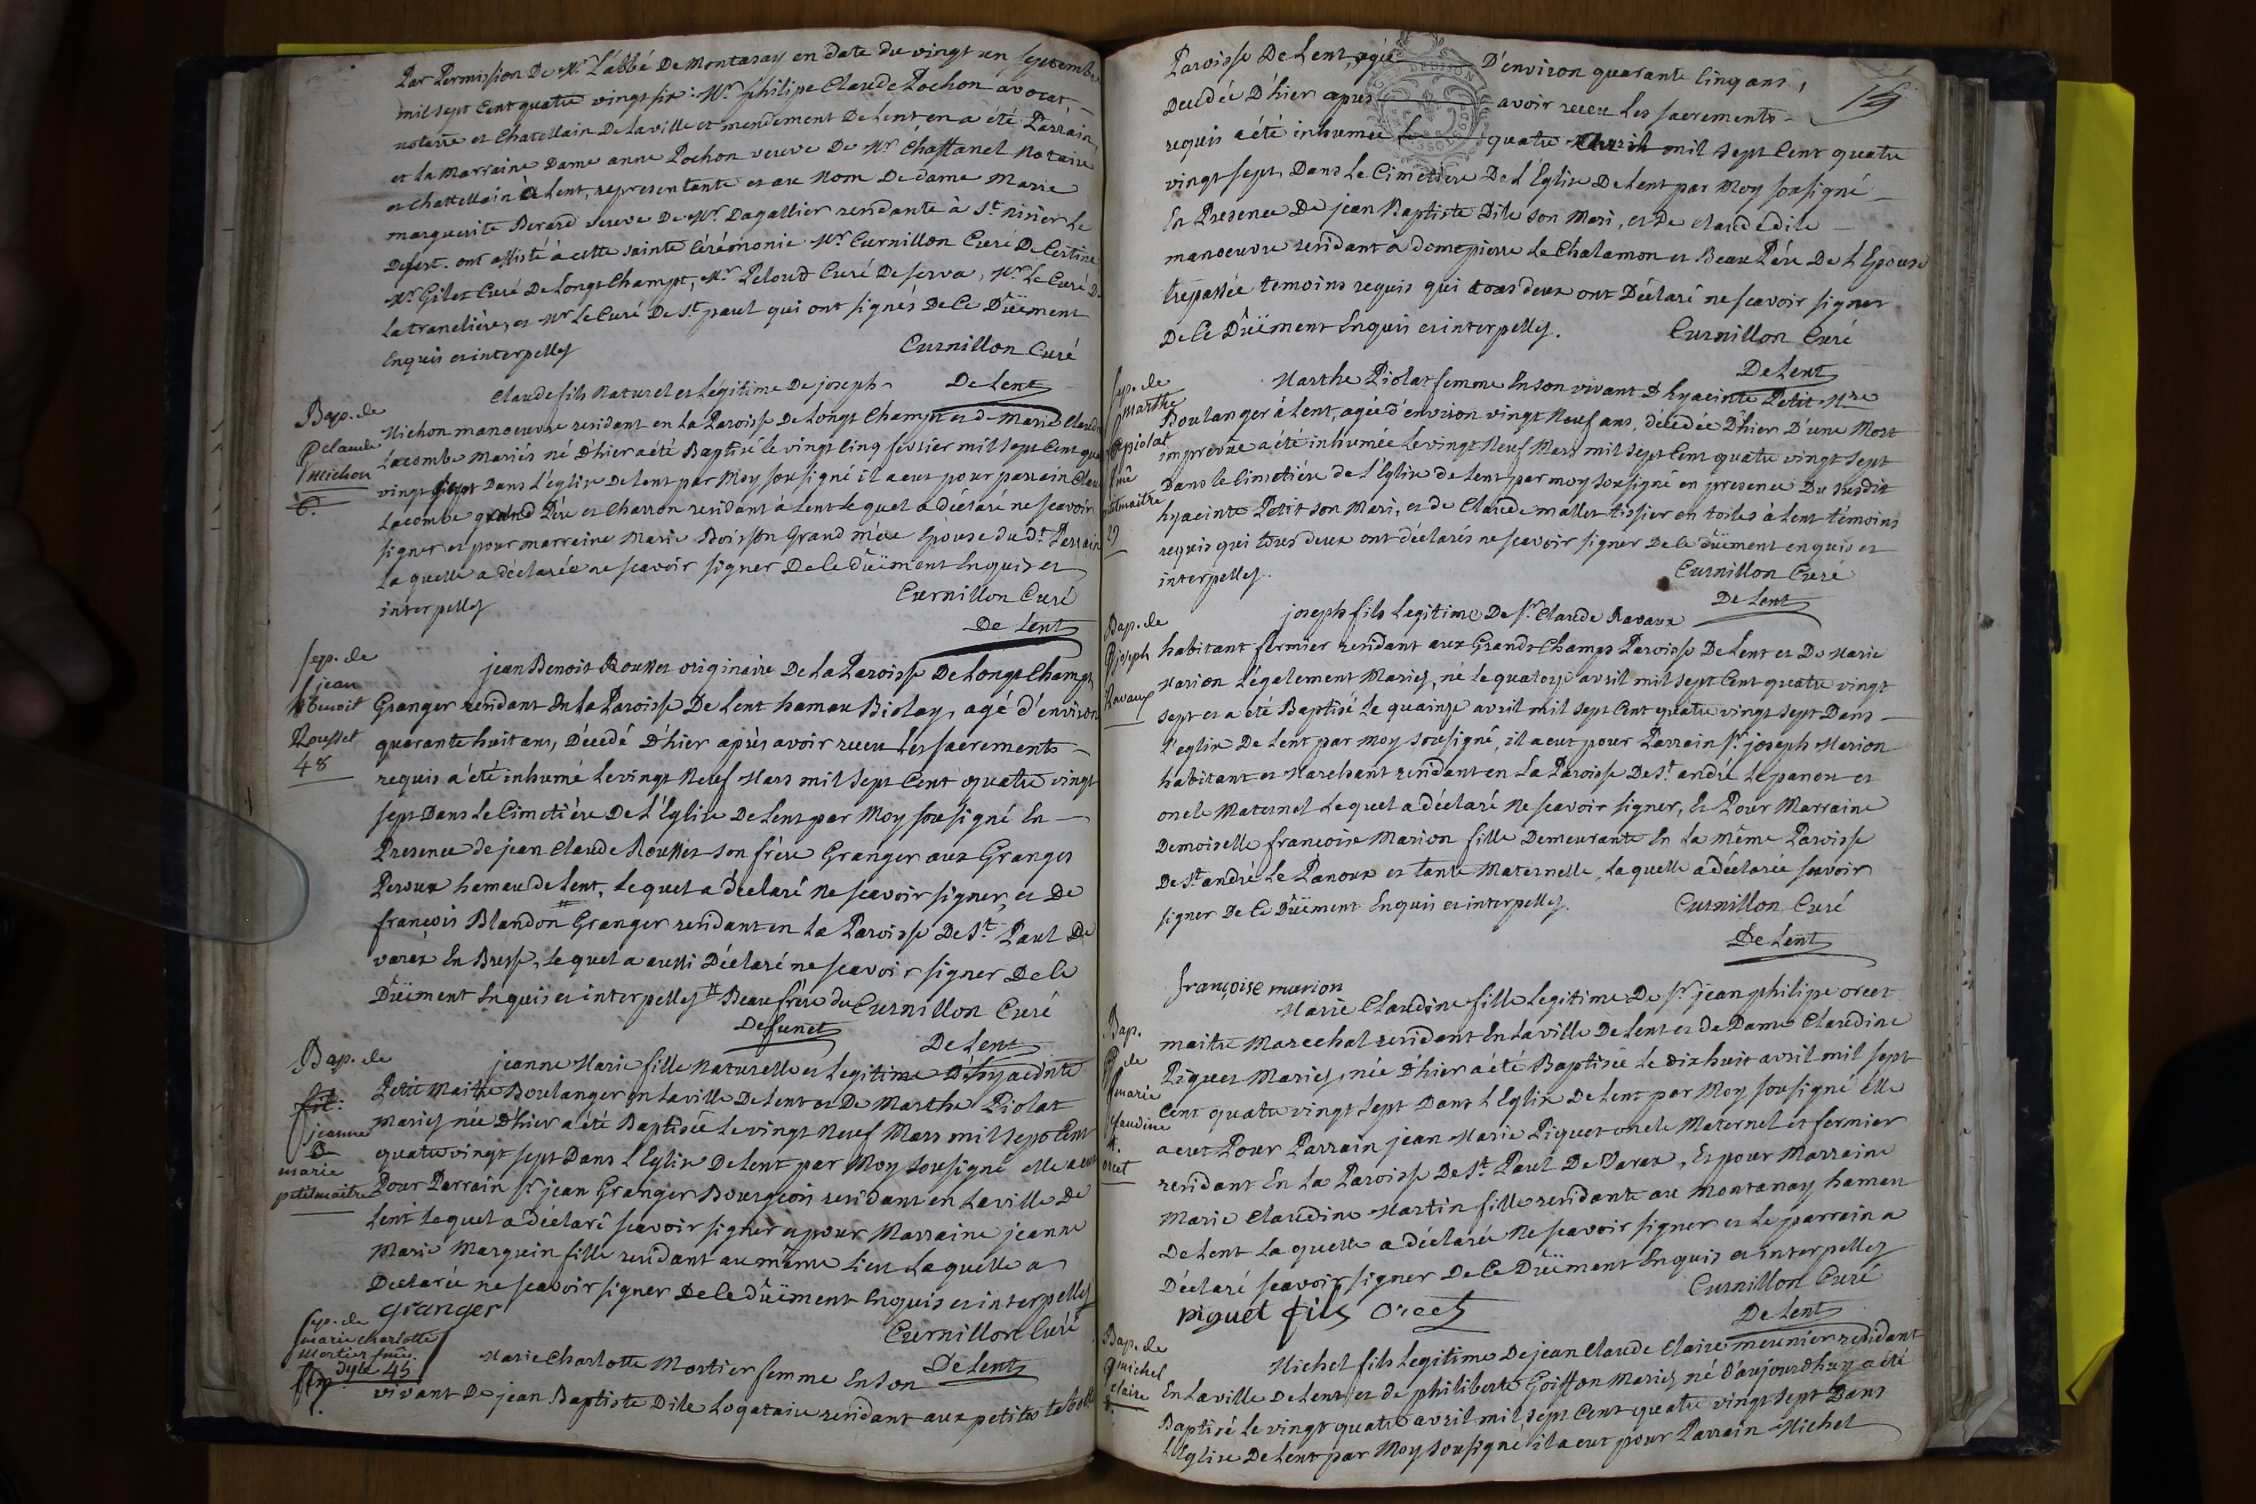 Par Permission De Mr L'abbé De Montazay en date du vingt un septembre
mil sept Cent quatre vingt six: Mr philipe Claude Pochon avocat
notaire et Chatellain De La ville et mendement De Lent en a été Parrain
et La Marraine Dame anne Pochon veuve De Mr Chattanel Notaire
et Chattellain à Lent, representante et au Nom De dame Marie
marguerite Berard veuve De Mr Dagallier residante à St nisier Le
Desert. ont assisté à cette sainte Cérémonie Mr Curnillon Curé De Certine
Mr Gilet Curé De Longt Champt, Mr Peloud Curé De serva, Mr Le Curé De
La tranclière, et Mr Le Curé De St paul qui ont signés De Ce Düement
Enquis et interpellés
Curnillon Curé
De Lent
Bap. de
Claude
michon
6.
Claude fils Naturel et Légitime De joseph
Michon manoeuvre residant en La Paroisse De Longt Champt et de Marie Claudi
Lacombe Mariés né D'hier a été Baptisé le vingt Cinq fevrier mil sept Cent qua
vingt sept Dans L'eglise De Lent par Moy sousigné il a eut pour parrain Clau
Lacombe grand Pére et Charron residant à Lent Le quel a déclaré ne scavoir
signer et pour marraine Marie Boisson Grand mére Epouse du Dt Parrain
La quelle a déclarée ne scavoir signer De Ce düement Enquis et
interpellés
Curnillon Curé
De Lent
sep. de
jean
Benoit
Rousset
48
jean Benoit Rousset originaire De La Paroisse De Longt Champt
Granger residant En La Paroisse De Lent hamau Biolay, agé d'environ
quarante huit ans, Décedé D'hier après avoir receu Les sacrements
requis a été inhumé Le vingt Neuf Mars mil sept Cent quatre vingt
sept Dans Le Cimetière De L'Eglise De Lent par Moy sousigné En
Presence de jean Claude Rousset son frère Granger aux Granges
Peroux hameau de Lent, Le quel a déclaré Ne scavoir signer, et De
françois Blandon # Granger residant en La Paroisse De St Paul De
varax En Bresse, Le quel a aussi Déclaré ne scavoir signer De Ce
Düement Enquis et interpellés # Beau frère du
Defunct
Curnillon Curé
De Lent
Bap. de
jeanne
marie
petitmaitre
jeanne Marie fille Naturelle et Legitime D'hyacinte
Petit Maitre Boulanger en La ville De Lent et De Marthe Piolat
Mariés née D'hier a été Baptisée Le vingt Neuf Mars mil sept Cent
quatre vingt sept Dans L'Eglise De Lent par Moy sousigné elle a eut
Pour Parrain Sr jean Granger Bourgeois residant en La ville De
Lent Le quel a déclaré scavoir signer et pour Marraine jeanne
Marie Marguin fille residant au même Lieu La quelle a
Déclarée ne scavoir signer De Ce düement Enquis et interpellés
Granger
Curnillon Curé
De Lent
sep. de
marie charlotte
mortier fme
dyle 45
Marie Charlotte Mortier femme En son
vivant De jean Baptiste Dile Logataire residant aux petites
Paroisse De Lent, agée D'environ quarante Cinq ans,
Decedée D'hier apres avoir receu Les sacrements
requis a été inhumée Le quatre avril mil sept Cent quatre
vingt sept, Dans Le Cimetiere De L'Eglise De Lent par Moy sousigné
En Presence De jean Baptiste Dile son Mari, et De claude dile
manoeuvre residant à dompierre Le Chalamon et Beau Pére De L'Epouse
trepassée temoins requis qui tous deux ont Déclaré ne scavoir signer
De Ce Düement Enquis et interpellés.
Curnillon Curé
De Lent
sep. de
marthe
piolat
fme
petitmaitre
29
Marthe Piolat femme En son vivant D'hyacinte Petit Mre
Boulanger à Lent, agée d'environ vingt Neuf ans, décedée D'hier D'une Mort
imprevüe a été inhumée Le vingt Neuf Mars mil sept Cent quatre vingt sept
Dans le Cimetière de L'Eglise de Lent par moy sousigné en presence Du susdit
hyacinte Petit son Mari, et de Claude mallet tissier en toiles à Lent témoins
requis qui tous deux ont déclarés ne scavoir signer De Ce düement enquis et
interpellés.
Curnillon Curé
De Lent
Bap. de
joseph
Ravaux
joseph fils Legitime De Sr Claude Ravaux
habitant fermier residant aux Grands Champs Paroisse De Lent et De Marie
Marion Légalement Mariés, né Le quatorze avril mil sept Cent quatre vingt
sept et a été Baptisé Le quainze avril mil sept Cent quatre vingt sept Dans
L'eglise De Lent par moy sousigné, il a eut pour Parrain Sr joseph Marion
habitant et Marchant residant en La Paroisse De St andré Le panoux et
oncle Maternel Le quel a déclaré Ne scavoir signer, Et Pour Marraine
Demoiselle francoise Marion fille Demeurante En La Même Paroisse
De St andré Le Panoux et tante Maternelle, La quelle a déclarée scavoir
signer De Ce Düement Enquis et interpellés.
Curnillon Curé
De Lent
françoise marion
Bap.
de
marie
claudine
orcet
Marie Claudine fille Legitime De Sr jean philipe orcet
maitre Marechal residant En La ville De Lent et de Dame Claudine
Piquet Mariés, née D'hier a été Baptisée Le dix huit avril mil sept
Cent quatre vingt sept Dans L'Eglise De Lent par Moy sousigné elle
a eut Pour Parrain jean Marie Piquet oncle Maternel et fermier
residant En La Paroisse De St Paul De Varax, Et pour Marraine
Marie Claudine Martin fille residante au Montanay hameau
De Lent La quelle a déclarée Ne scavoir signer et Le parrain a
Déclaré scavoir signer De Ce Düement Enquis et interpellés
piquet fils Orcet
Curnillon Curé
De Lent
Bap. de
michel
claire
Michel fils Legitime De jean Claude Claire meunier residant
En La ville De Lent et de philiberte Goiffon Mariés né d'aujourdhuy a été
Baptisé Le vingt quatre avril mil sept Cent quatre vingt sept Dans
L'Eglise De Lent par Moy sousigné il a eut pour Parrain Michel